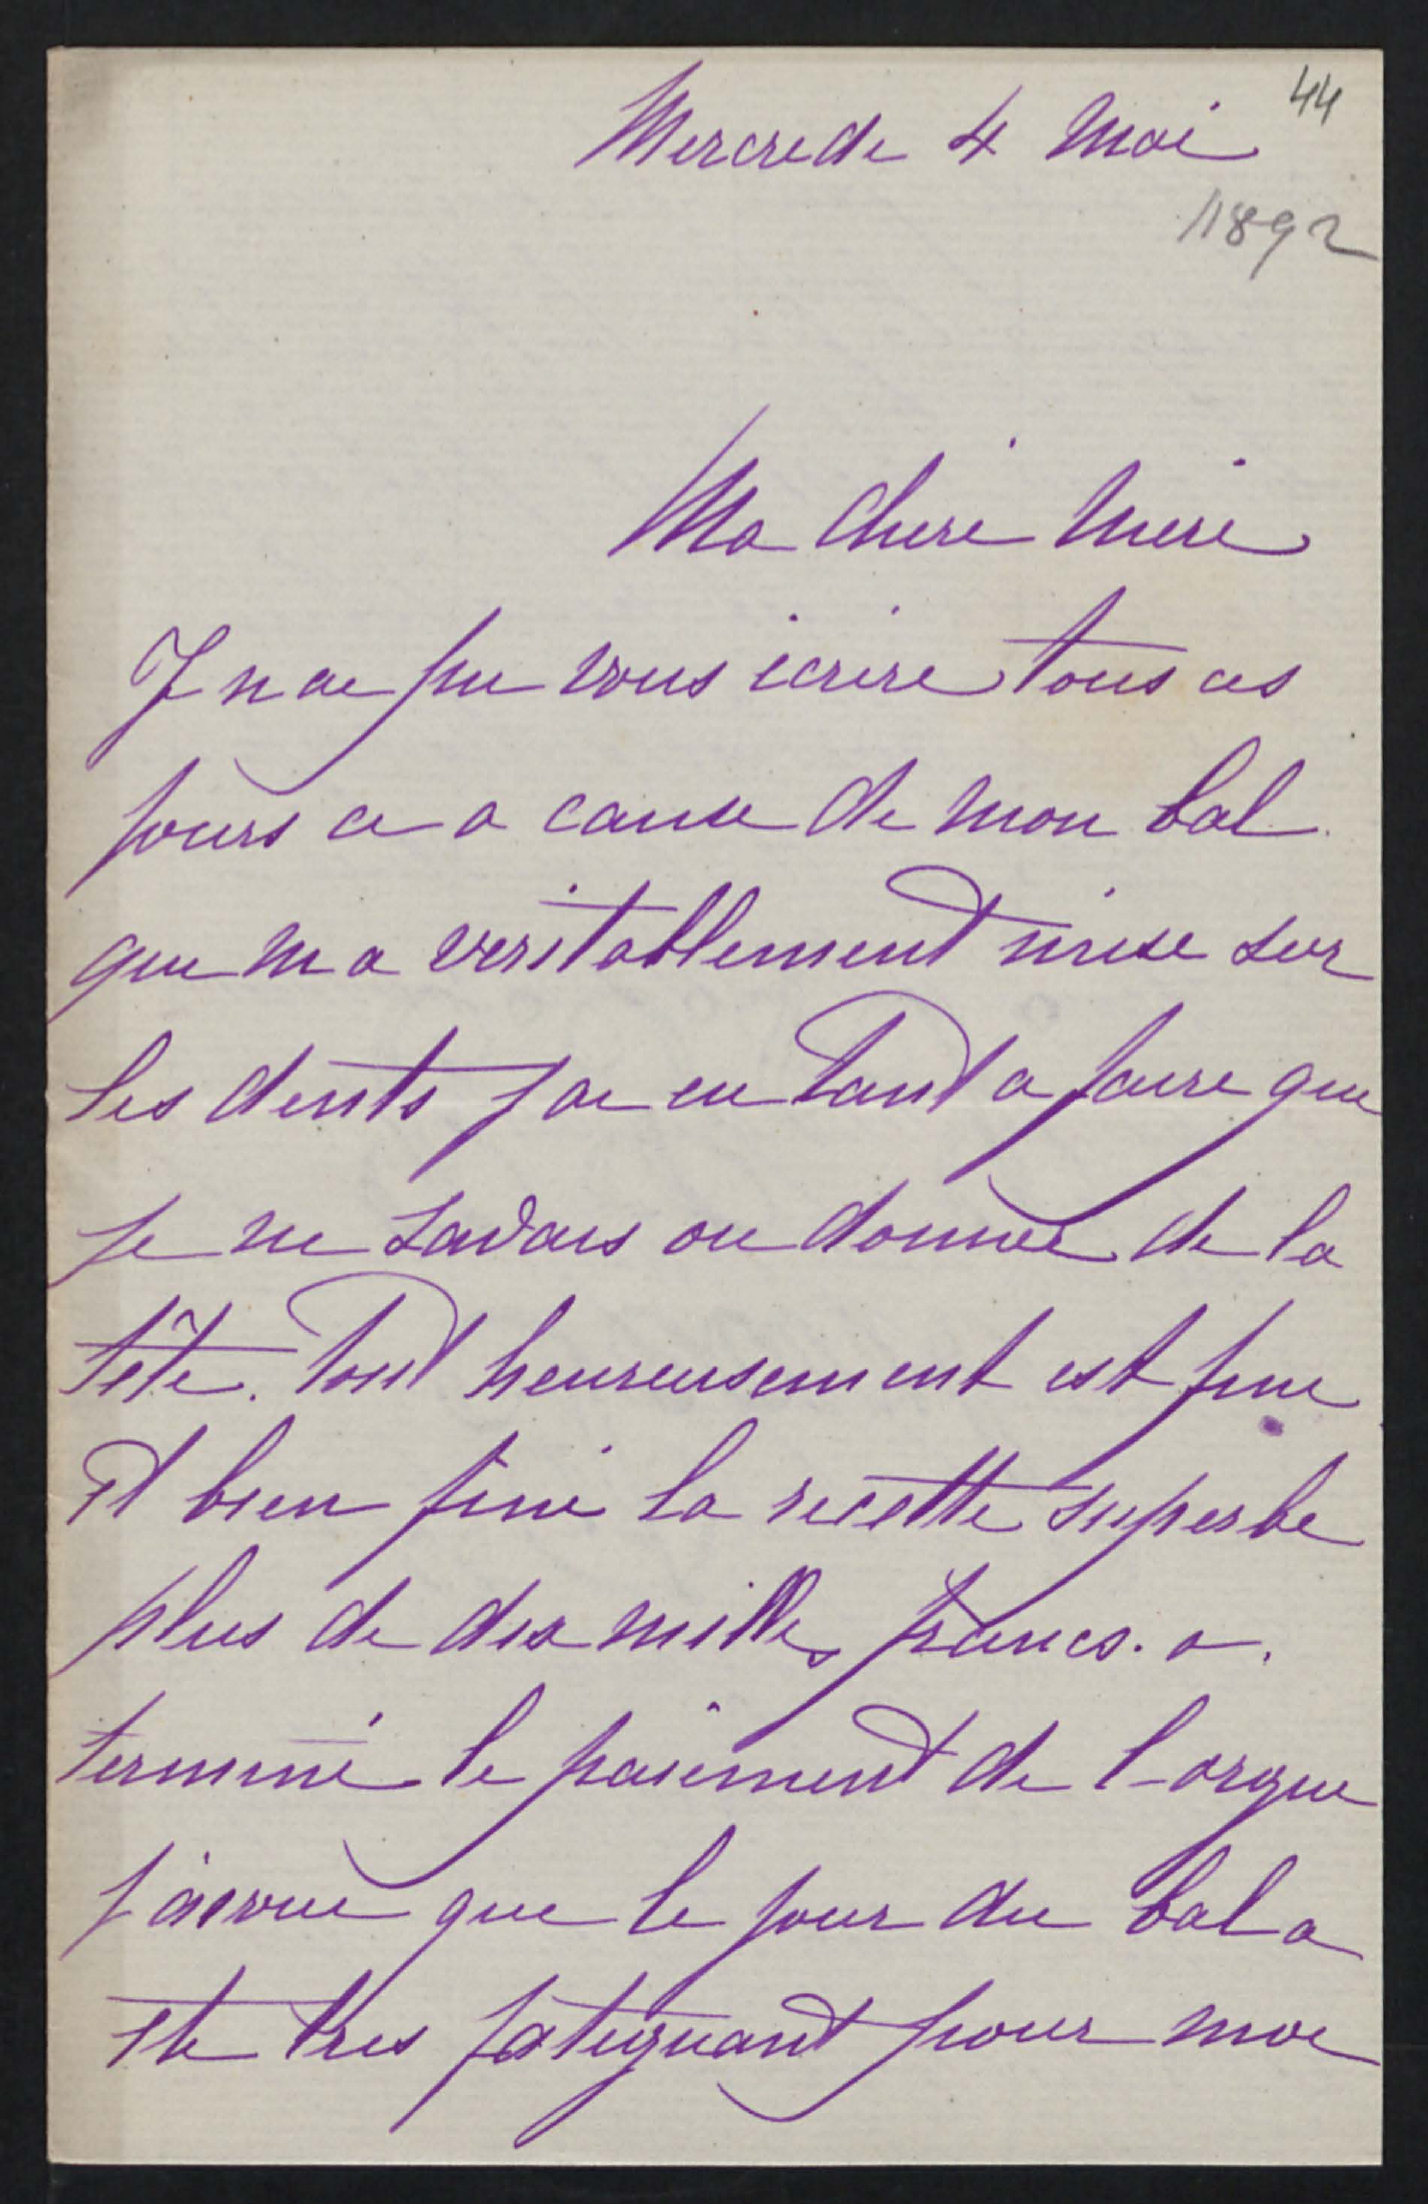 44
Mercredi 4 Mai
1892
Ma chère Mère
J n ai pu vous écrire tous ces
jours ci a cause de mon bal
qui m a veritablement mise sur
les dents j ai eu tant a faire que
je ne savais ou donner de la
tête. Tout heureusement est fini
et bien fini la recette superbe
plus de dix mille francs. a
terminé le paiement de l-orgue
j'avoue que le jour du bal a
été tres fatiguant pour moi